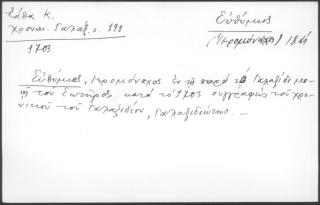 Σάθα Κ.
Χρονικ. Γαλαξ. σ. 191
1703
Εὐθύμιος
(Ἱερομόναχος) 18
Εὐθύμιος, ἱερομόναχος ἐν τῇ παρὰ τὸ Γαλαξίδι μο-
νῇ τοῦ Σωτῆρος κατὰ τὸ 1703 συγγραφεὺς τοῦ χρο-
νικοῦ τοῦ Γαλαξειδίου, Γαλαξιδιώτης. —